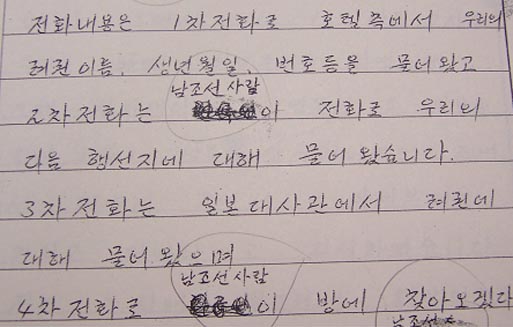 전화내용은 1차전화로 호텔측에서 우리의
려권이름, 생년월일, 번호등을 물어왔고
남조선사람
2차전화는 이 전화로 우리의
다음 행선지에 대해 물어왔습니다.
3차전화는 일본대사관에서 려권에
대해 물어왔으며
남조선사람
4차전화로 이 방에 찾아오겠다
남조선